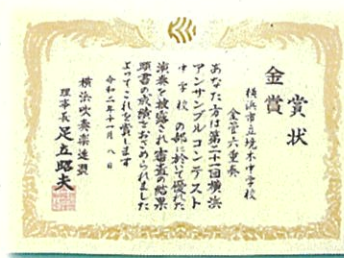 賞状
金賞
横浜市立境木中学校
金管六重奏
あなた方は第二十一回横浜
アンサンブルコンテスト
中学校の部に於いて優れた
演奏を披露され審査の結果
頭書の成績をおさめられました
よってこれを賞します
令和二年十一月八日
横浜吹奏楽連盟
理事長 足立昭夫